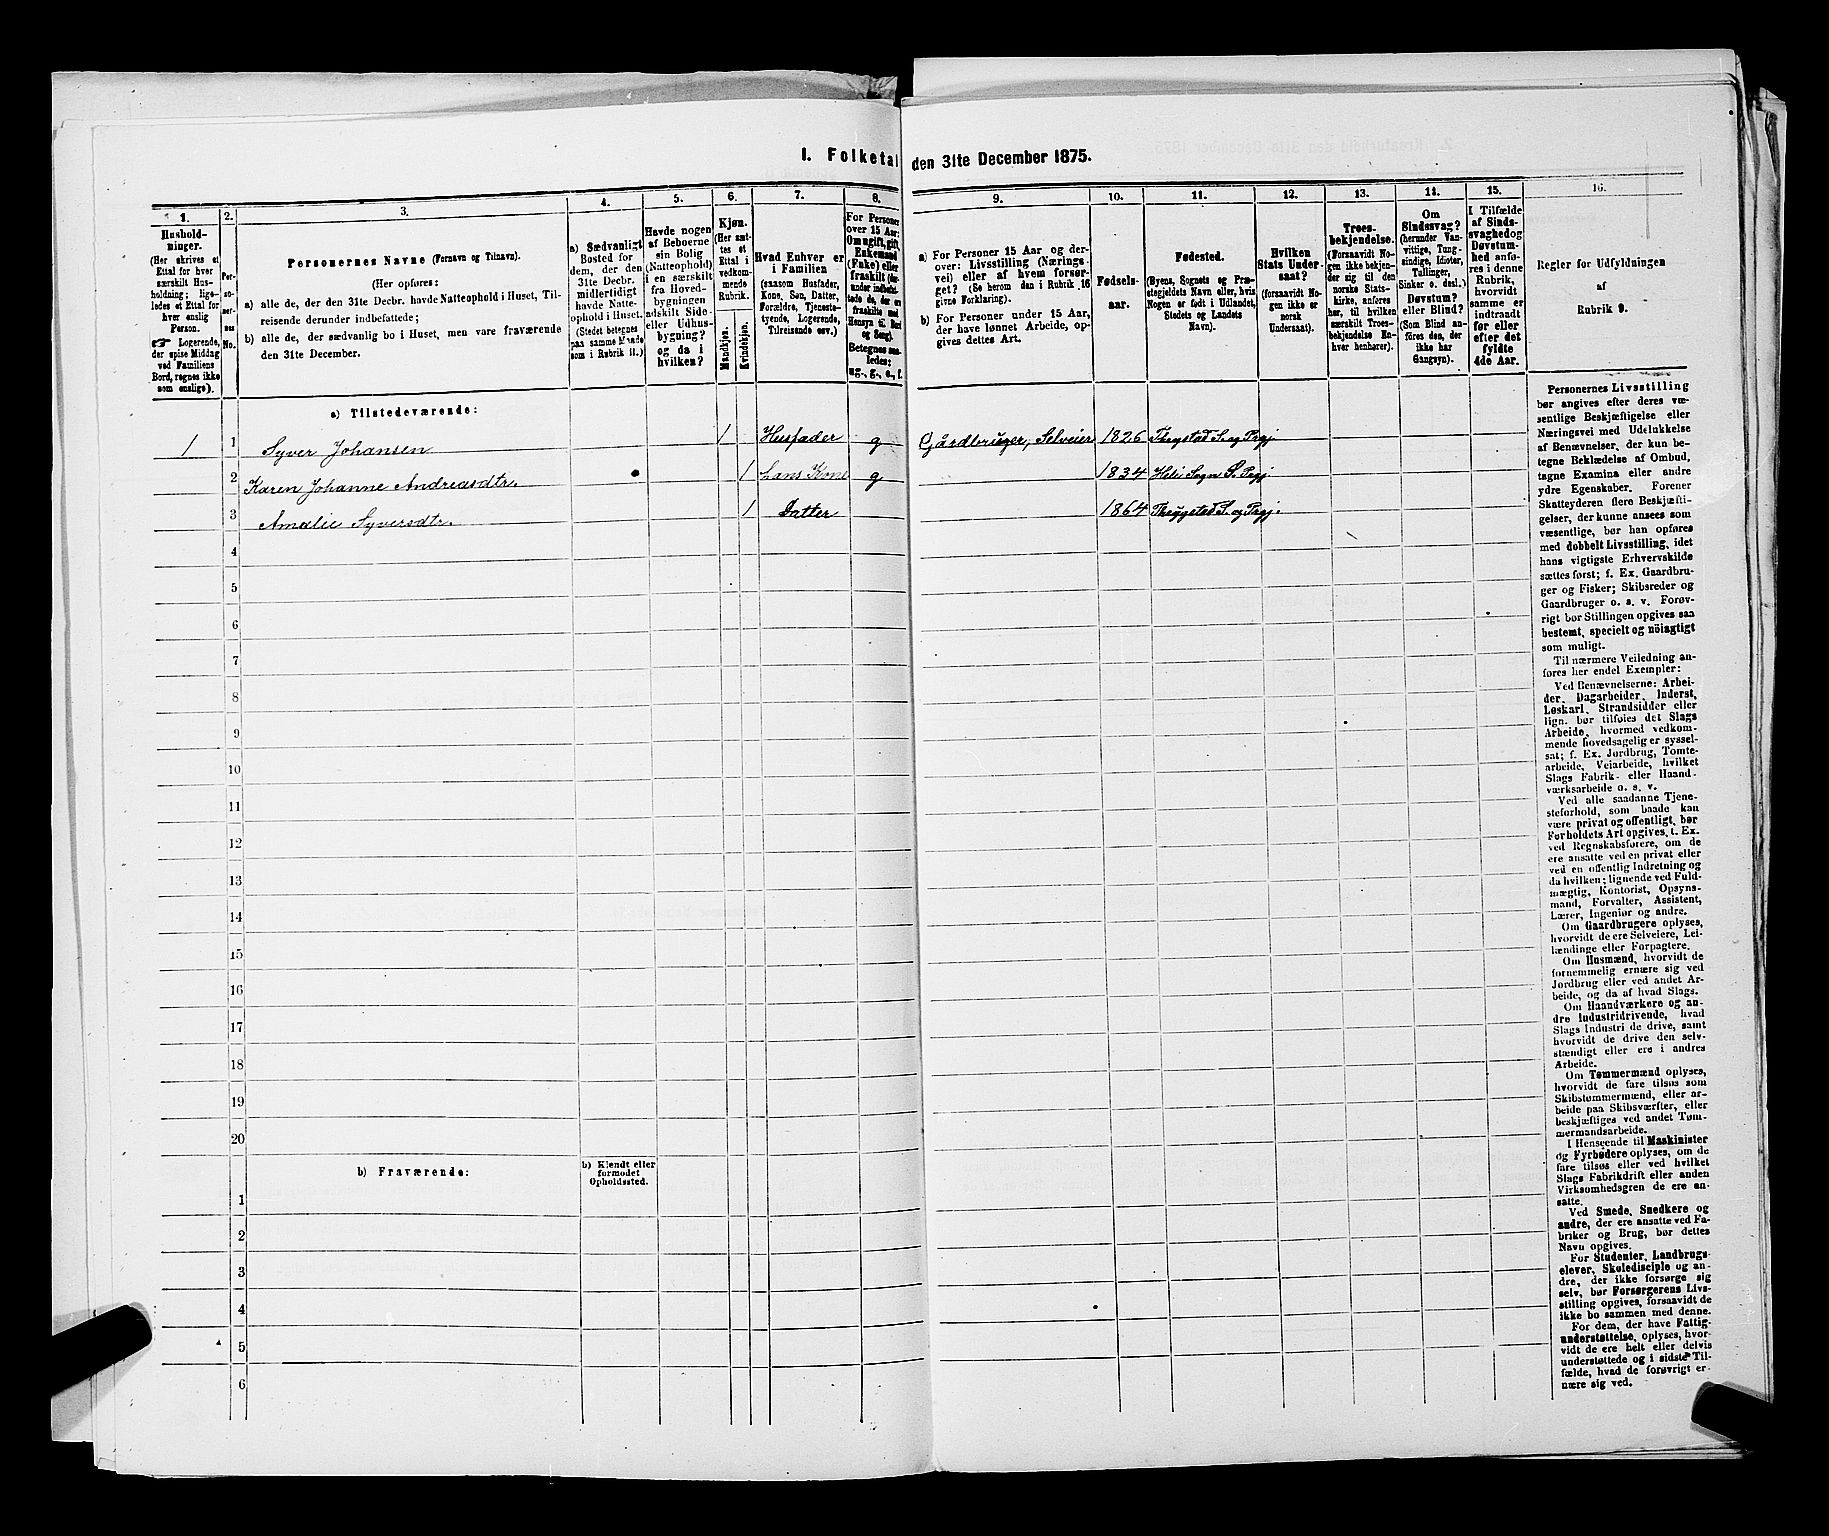 I. Folketal den 31te December 1875.
1.
Hushold-
ninger.
(Her skrives et
Ettal for hver
særskilt Hus-
holdning; lige-
ledes et Ettal for
hver enslig
Person.
Logerende,
der spise Middag
ved Familiens
Bord, regnes ikke
som enslige).
2.
Per-
so-
ner-
nes
No.
3.
Personernes Navne (Fornavn og Tilnavn).
(Her opføres:
a) alle de, der den 31te Decbr. havde Natteophold i Huset, Til-
reisende derunder indbefattede;
b) alle de, der sædvanlig bo i Huset, men vare fraværende
den 31te December.
4.
a) Sædvanligt
Bosted for
dem, der den
31te Decbr.
midlertidigt
havde Natte-
ophold i Huset.
(Stedet betegnes
paa samme Maade
som i Rubrik 11.)
5.
Havde nogen
af Beboerne
sin Bolig
(Natteophold)
i en særskilt
fra Hoved-
bygningen
adskilt Side-
eller Udhus-
bygning?
og da i
hvilken?
6.
Kjøn.
(Her sæt-
tes et
Ettal i
vedkom-
mende
Rubrik.
Mandkjøn.
Kvindekjøn.
7.
Hvad Enhver er
i Familien
(saasom Husfader,
Kone, Søn, Datter,
Forældre, Tjeneste-
tyende, Logerende,
Tilreisende osv.)
8.
For Personer
over 15 Aar:
Om ugift, gift,
Enkemand
(Enke) eller
fraskilt
Betegnes saa-
ledes:
ug., g., e., f.
9.
a) For Personer 15 Aar og der-
over: Livsstilling (Nærings-
vei) eller af hvem forsør-
get? (Se herom den i Rubrik 16
givne Forklaring).
b) For Personer under 15 Aar,
der have lønnet Arbeide, op-
gives dettes Art.
10.
Fødsels-
aar.
11.
Fødested.
(Byens, Sognets og Præ-
stegjeldets Navn eller, hvis
Nogen er født i Udlandet,
Stedets og Landets
Navn).
12.
Hvilken
Stats Under-
saat?
(forsaavidt No-
gen ikke er
norsk
Undersaat).
13.
Troes-
bekjendelse.
(Forsaavidt No-
gen ikke bekjen-
der sig til den
norske Stats-
kirke, anføres
her, til hvilken
særskilt Troes-
bekjendelse En-
hver henhører).
14.
Om
Sindssvag?
(herunder Van-
vittige, Tung-
sindige, Idioter,
Tullinger,
Sinker o. desl.)
Døvstum?
eller Blind?
(Som Blind an-
føres den, der
ikke har
Gangsyn).
15.
I Tilfælde
af Sinds-
svaghed og
Døvstum-
hed anfø-
res i denne
Rubrik,
hvorvidt
samme er
indtraadt
før eller
efter det
fyldte
4de Aar.
16.
Regler for Udfyldningen
af
Rubrik 9.
a) Tilstedeværende:
1 1 Syver Johansen 1 Husfader g Gårdbruger, Selveier 1826 S. og Prgj.
2 Karen Johanne Andreasdtr. 1 hans Kone g 1834 Sogn S. Prgj.
3 Amalie Syversdtr. 1 Datter 1864 S. og Prgj.
4
5
6
7
8
9
10
11
12
13
14
15
16
17
18
19
20
b) Fraværende:
b) Kjendt eller
formodet
Opholdssted.
1
2
3
4
5
6
Personernes Livsstilling
bør angives efter deres væ-
sentlige Beskjæftigelse eller
Næringsvei med Udelukkelse
af Benævnelser, der kun be-
tegne Beklædelse af Ombud,
tagne Examina eller andre
ydre Egenskaber. Forener
Skatteyderen flere Beskjæfti-
gelser, der kunne ansees som
væsentlige, bør han opføres
med dobbelt Livsstilling, idet
hans vigtigste Erhvervskilde
sættes først; f. Ex. Gaardbru-
ger og Fisker; Skibsreder og
Gaardbruger o. s. v. Forøv-
rigt bør Stillingen opgives saa
bestemt, specielt og nöiagtigt
som muligt.
Til nærmere Veiledning an-
føres her endel Exempler:
Ved Benævnelserne: Arbei-
der, Dagarbeider, Inderst,
Løskarl, Strandsidder eller
lign. bør tilføies det Slags
Arbeide, hvormed vedkom-
mende hovedsagelig er syssel-
sat; f. Ex. Jordbrug, Tomte-
arbeide, Veiarbeide, hvilket
Slags Fabrik- eller Haand-
værksarbeide o. s. v.
Ved alle saadanne Tjene-
steforhold, som baade kan
være privat og offentligt, bør
Forholdets Art opgives, t. Ex.
ved Regnskabsførere, om de
ere ansatte ved en privat eller
ved en offentlig Indretning og
da hvilken; lignende ved Fuld-
mægtig, Kontorist, Opsyns-
mand, Forvalter, Assistent,
Lærer, Ingeniør og andre.
Om Gaardbrugere oplyses,
hvorvidt de ere Selveiere, Lei-
lændinge eller Forpagtere.
Om Husmænd, hvorvidt de
fornemmelig ernære sig ved
Jordbrug eller ved andet Ar-
beide, og da af hvad Slags.
Om Haandværkere og an-
dre Industridrivende, hvad
Slags Industri de drive, samt
hvorvidt de drive den selv-
stændigt eller ere i andres
Arbeide.
Om Tømmermænd oplyses,
hvorvidt de fare tilsøs som
Skibstømmermænd, eller ar-
beide paa Skibsværfter, eller
beskjæftiges ved andet Tøm-
mermandsarbeide.
I Henseende til Maskinister
og Fyrbødere oplyses, om de
fare tilsøs eller ved hvilket
Slags Fabrikdrift eller anden
Virksomhedsgren de ere an-
satte.
Ved Smede, Snedkere og
andre, der ere ansatte ved Fa-
briker og Brug, bør dettes
Navn opgives.
For Studenter, Landbrugs-
elever, Skoledisciple og an-
dre, der ikke forsørge sig
selv, bør Forsørgerens Livs-
stilling opgives, forsaavidt de
ikke bo sammen med denne.
For dem, der have Fattig-
understøttelse, oplyses, hvor-
vidt de ere helt eller delvis
understøttede og i sidste Til-
fælde, hvad de forøvrigt er-
nære sig ved.